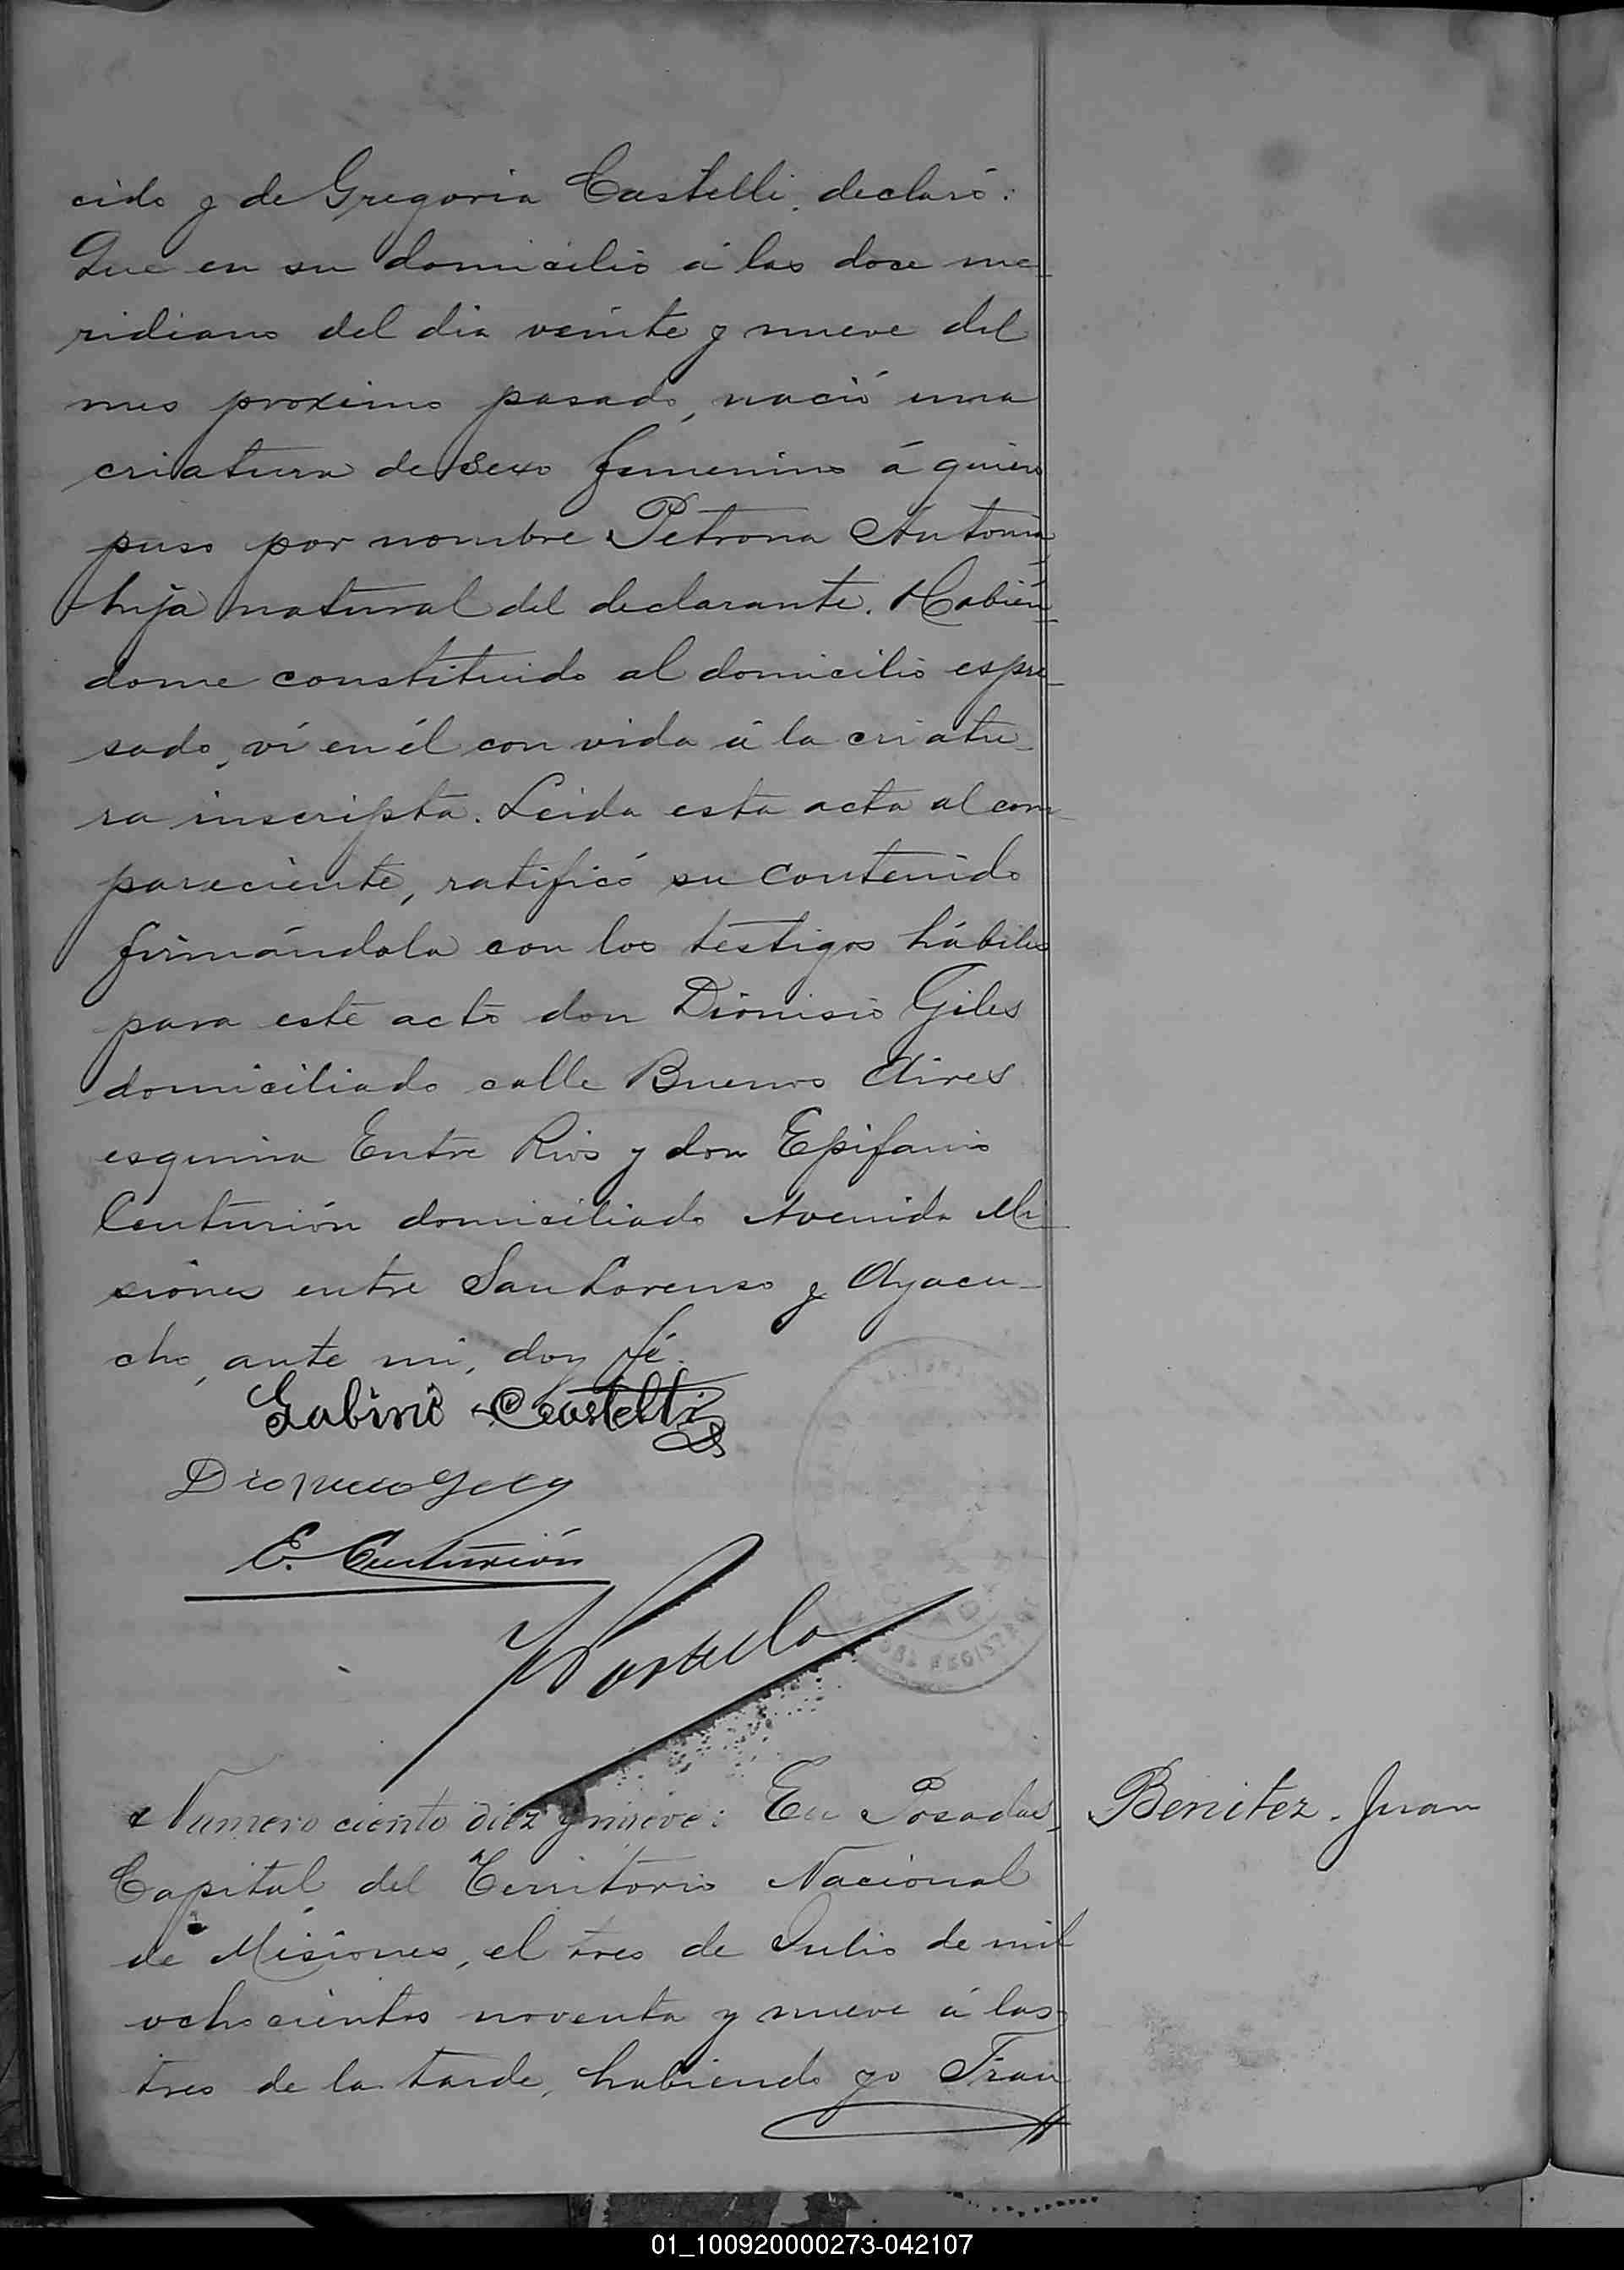 cido y de Gregoria Castelli, declaró:
Que en su domicilio á las doce me-
ridiano del dia veinte y nueve del
mes proximo pasado, nació una
criatura de sexo femenino á quien
puso por nombre Petrona Antonia,
hija natural del declarante. Habién-
dome constituido al domicilio espre-
sado, ví en él con vida á la criatu-
ra inscripta. Leida esta acta al com-
pareciente, ratificó su contenido
firmándola con los testigos hábiles
para este acto don Dionisio Giles
domiciliado calle Buenos Aires
esquina Entre Rios y don Epifanio
Centurión domiciliado Avenida Mi-
siones entre San Lorenso y Ayacu-
cho, ante mi, doy fé.
Gabino Castelli
Dionicio Giles
E. Centurión
DEL REGISTRO
Numero ciento diez y nueve: En Posadas,
Benitez. Juan
Capital del Territorio Nacional
de Misiones, el tres de Julio de mil
ochocientos noventa y nueve á las
tres de la tarde, habiendo yo Fran
01_100920000273-042107